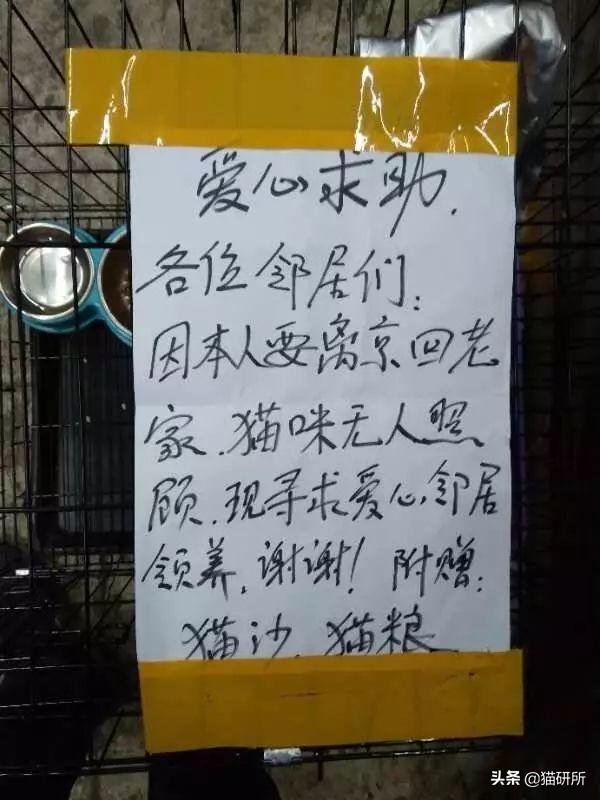 爱心求助.
各位邻居们:
因本人要离京回老
家.猫咪无人照
顾.现寻求爱心邻居
领养.谢谢! 附赠:
猫沙.猫粮
头条 @猫研所